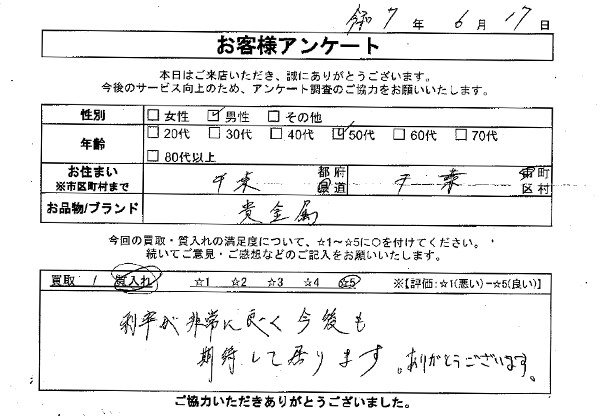 令和7年6月17日
お客様アンケート
本日はご来店いただき、誠にありがとうございます。
今後のサービス向上のため、アンケート調査のご協力をお願いいたします。
性別 □女性 ☑男性 □その他
年齢 □20代 □30代 □40代 ☑50代 □60代 □70代
□80代以上
お住まい ※市区町村まで 千葉 都府県道 千葉 市町区村
お品物/ブランド 貴金属
今回の買取・質入れの満足度について、☆1～☆5に○を付けてください。
続いてご意見・ご感想などのご記入をお願いいたします。
買取 / 質入れ ☆1 ☆2 ☆3 ☆4 ☆5 ※【評価:☆1(悪い)−☆5(良い)】
利率が非常に良く今後も
期待して居ります。ありがとうございます。
ご協力いただきありがとうございました。